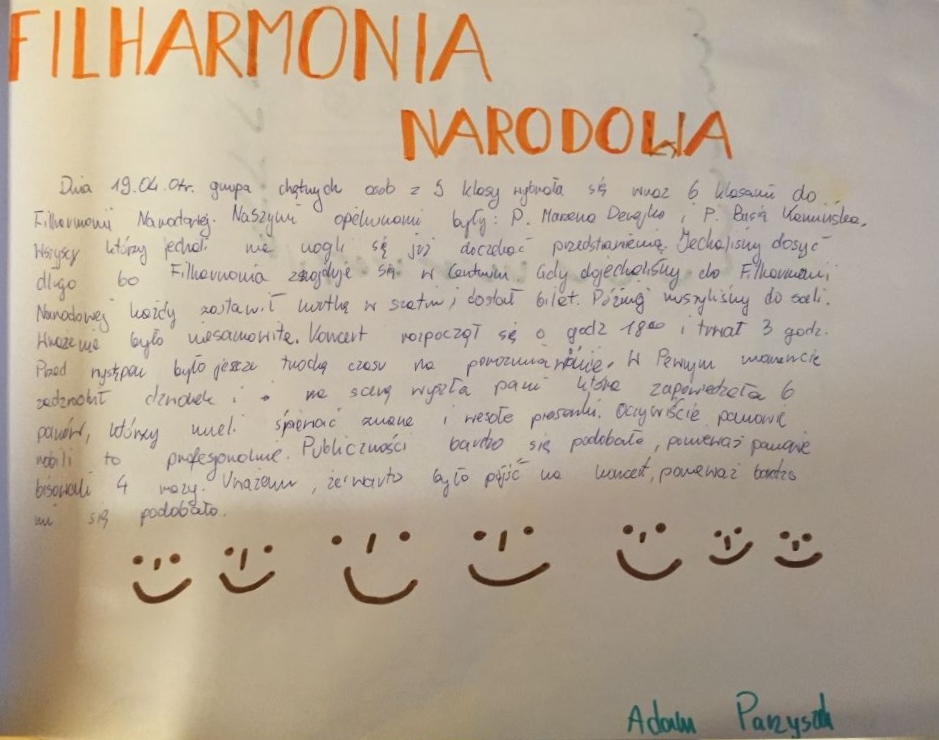 FILHARMONIA
NARODOWA
Dnia 19.04.04r. grupa chętnych osob z 5 klasy wybrała się wraz 6 klasami do
Filharmonii Narodowej. Naszymi opiekunami były: P. Marzena i P. Basia Kamińska.
Wszyscy którzy jechali nie mogli się już doczekać przedstawienia. Jechaliśmy dosyć
długo bo Filharmonia znajduje się w Centrum. Gdy dojechaliśmy do Filharmonii
Narodowej każdy zostawił kurtkę w szatni i dostał bilet. Później ruszyliśmy do sali.
Wrażenie było niesamowite. Koncert rozpoczął się o godz 18⁰⁰ i trwał 3 godz.
Przed występem było jeszcze trochę czasu na W Pewnym momencie
zadzwonił dzwonek i na scenę wyszła pani która zapowiedzała 6
panów, którzy mieli śpiewać znane i wesołe piosenki. Oczywiście panowie
robili to profesjonalnie. Publiczności bardzo się podobało, ponieważ panowie
bisowali 4 razy. Uważam, że warto było pójść na koncert, ponieważ bardzo
mi się podobało.
Adam